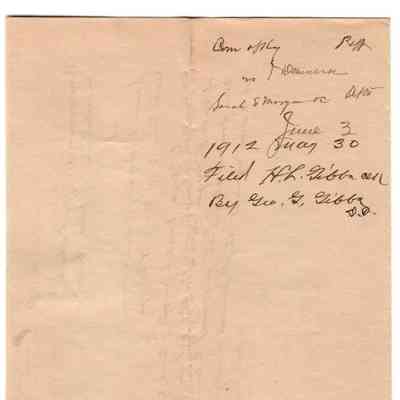 Com of Ky Plff
vs Demurrer
Sarah E Morgan &c Defts
June 3
1912 May 30
Filed H. L. Gibbs
By Geo. G. Gibbs
D.C.